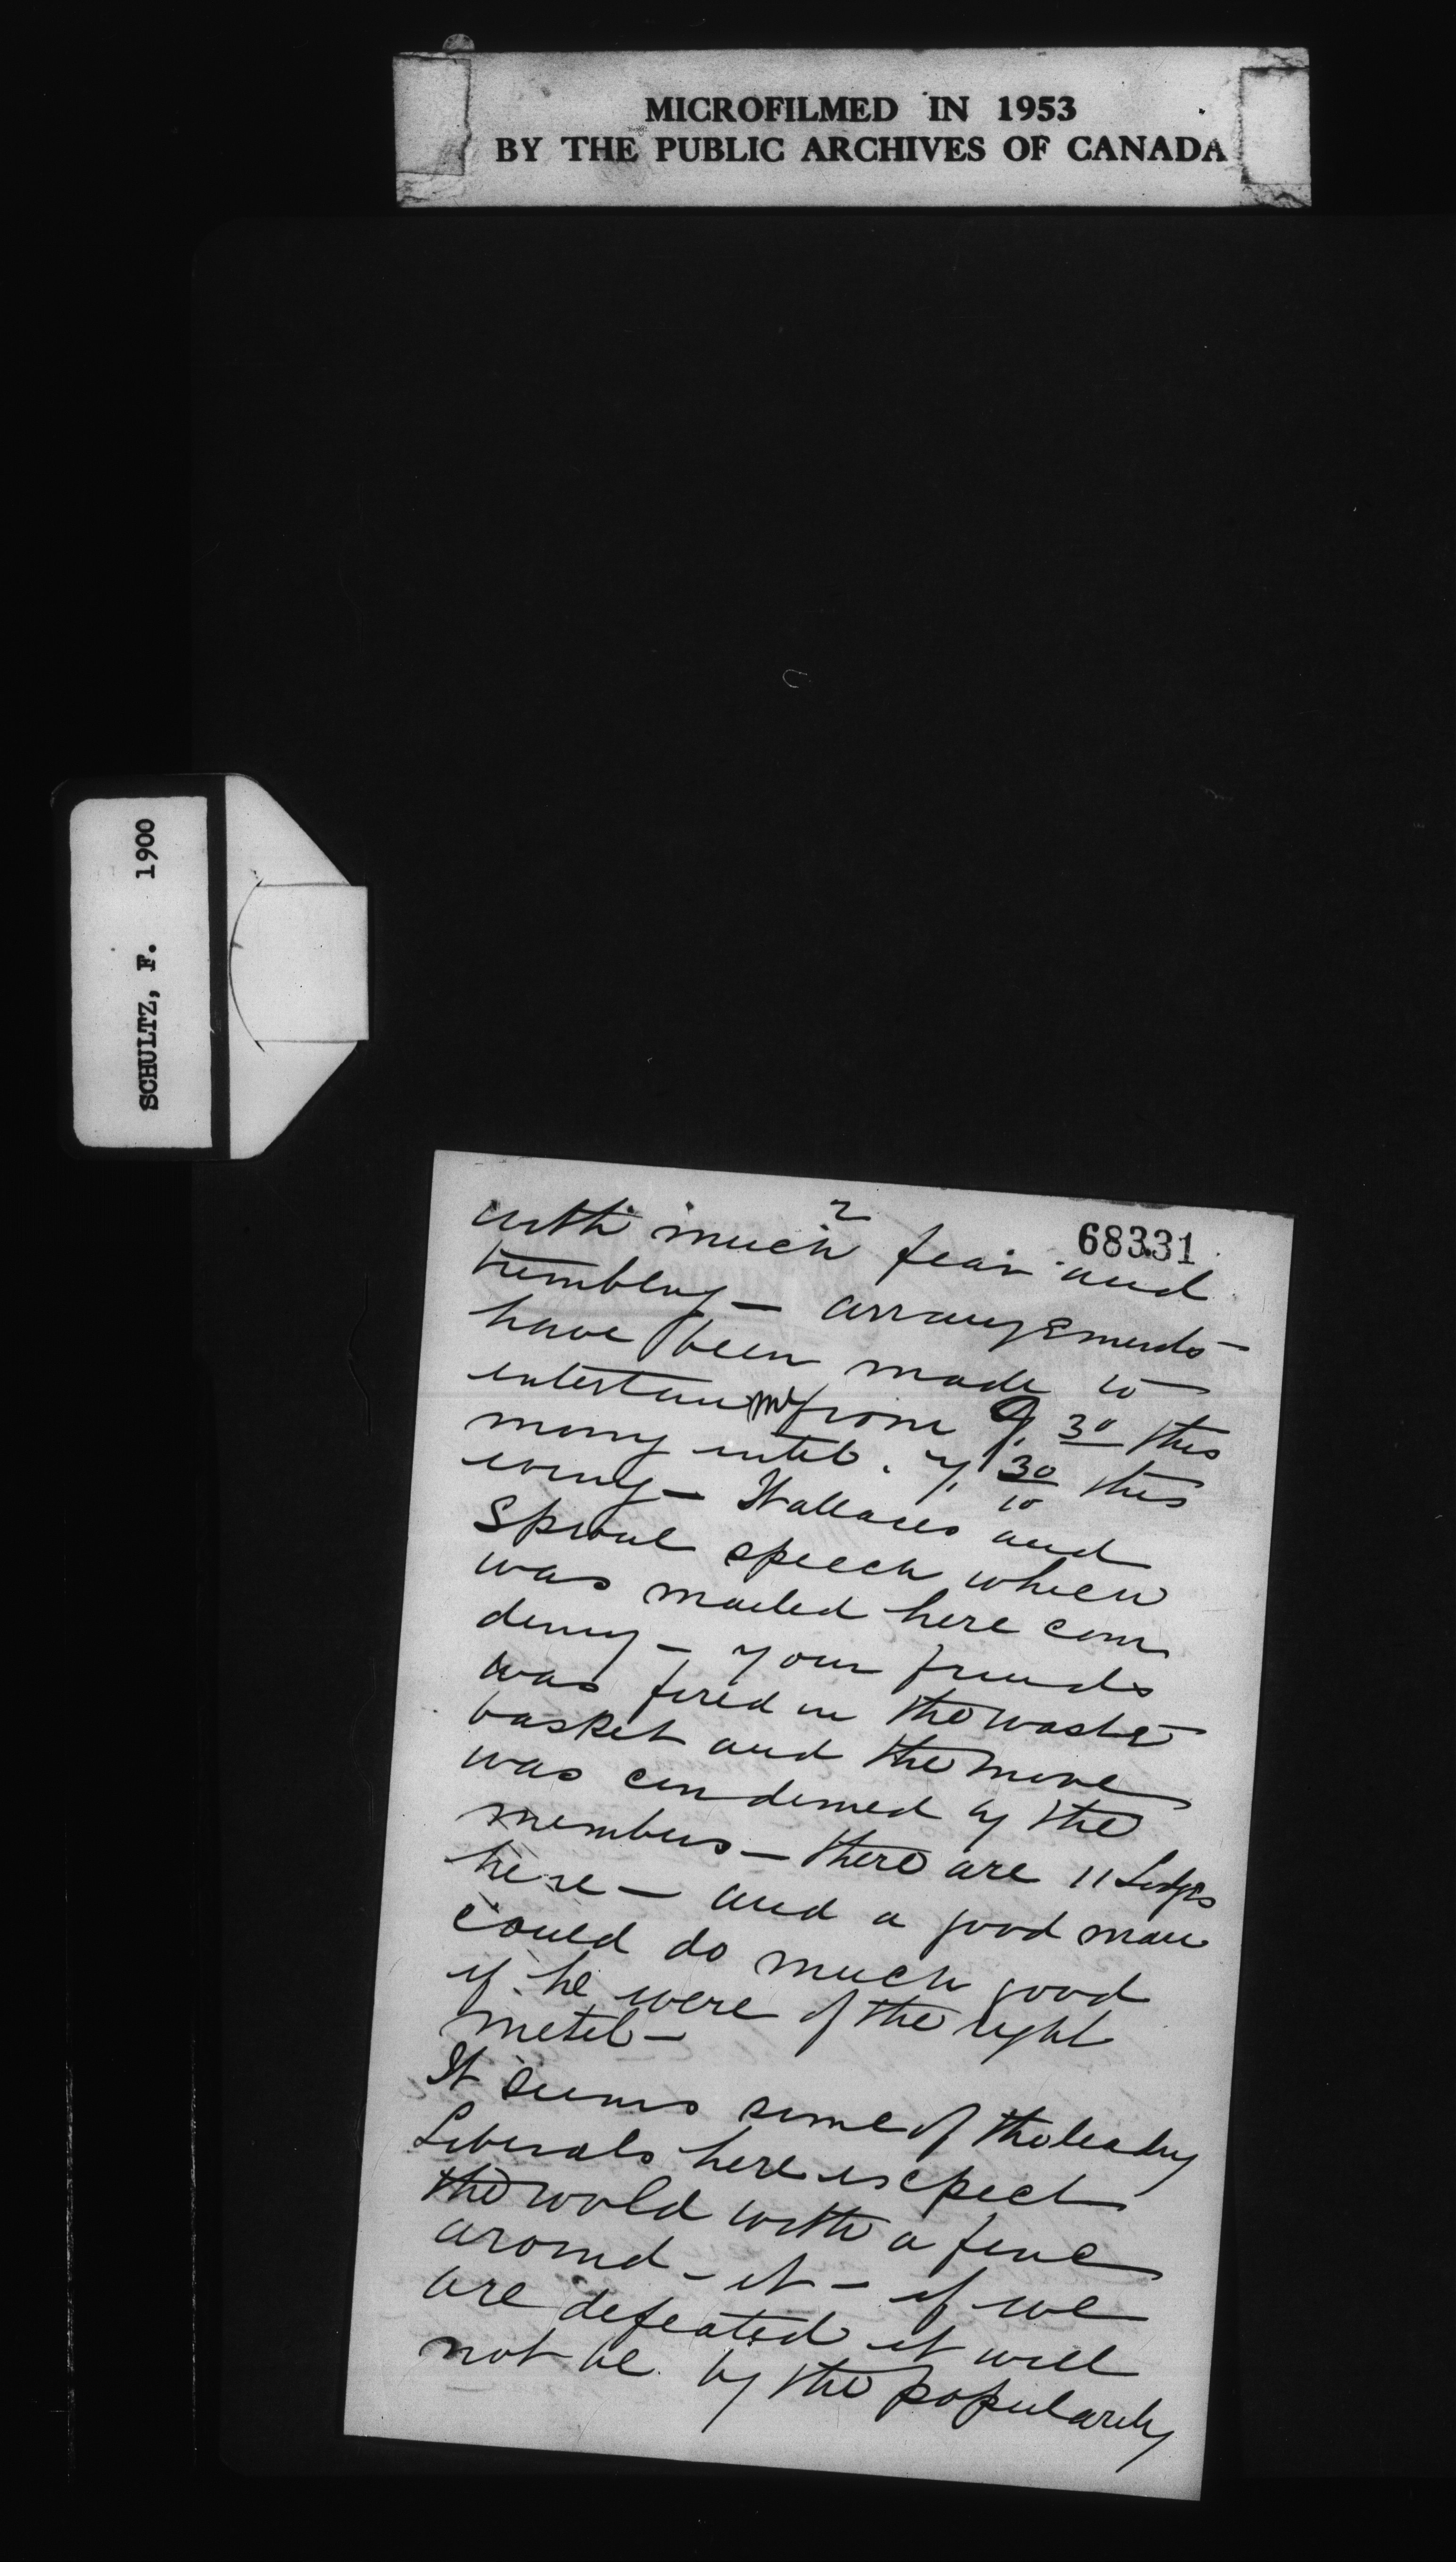 MICROFILMED IN 1953
BY THE PUBLIC ARCHIVES OF CANADA
SCHULTZ, F. 1900
2
68331
with much fear and
trembling — arrangements
have been made to
entertain me from 9.30 this
morng until 7.30 this
eveng — Wallaces and
Sproul speech which
was mailed here con
demng — your friends
was fired in the waste
basket and the move
was condemed by the
members — there are 11 Lodges
here — and a good man
could do much good
if he were of the right
metel —
It seems some of the leadng
Liberals here expect
the wold with a fence
around - it - if we
are defeated it will
not be by the popularity